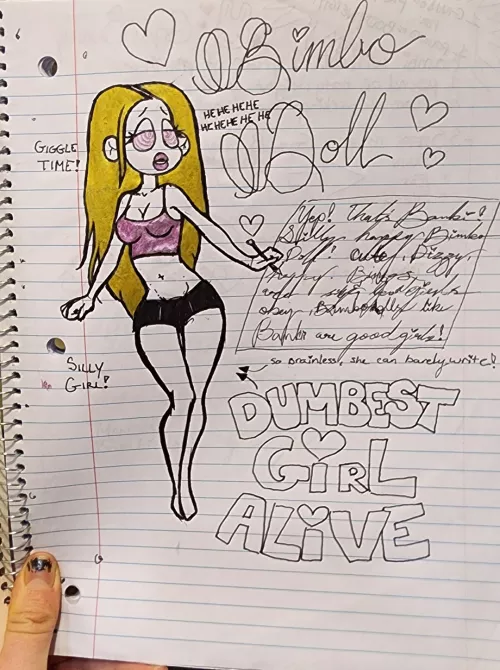 Bimbo
HEHEHEHE
HEHEHEHEHE
Doll
GIGGLE
TIME!
Yep! That's Bambi!
Silly, happy, Bimbo
Doll! cute, Dizzy,
Bimbos
obey, like
Bambi are good girls!
so brainless, she can barely write!
SILLY
GIRL!
DUMBEST
GiRL
ALiVE